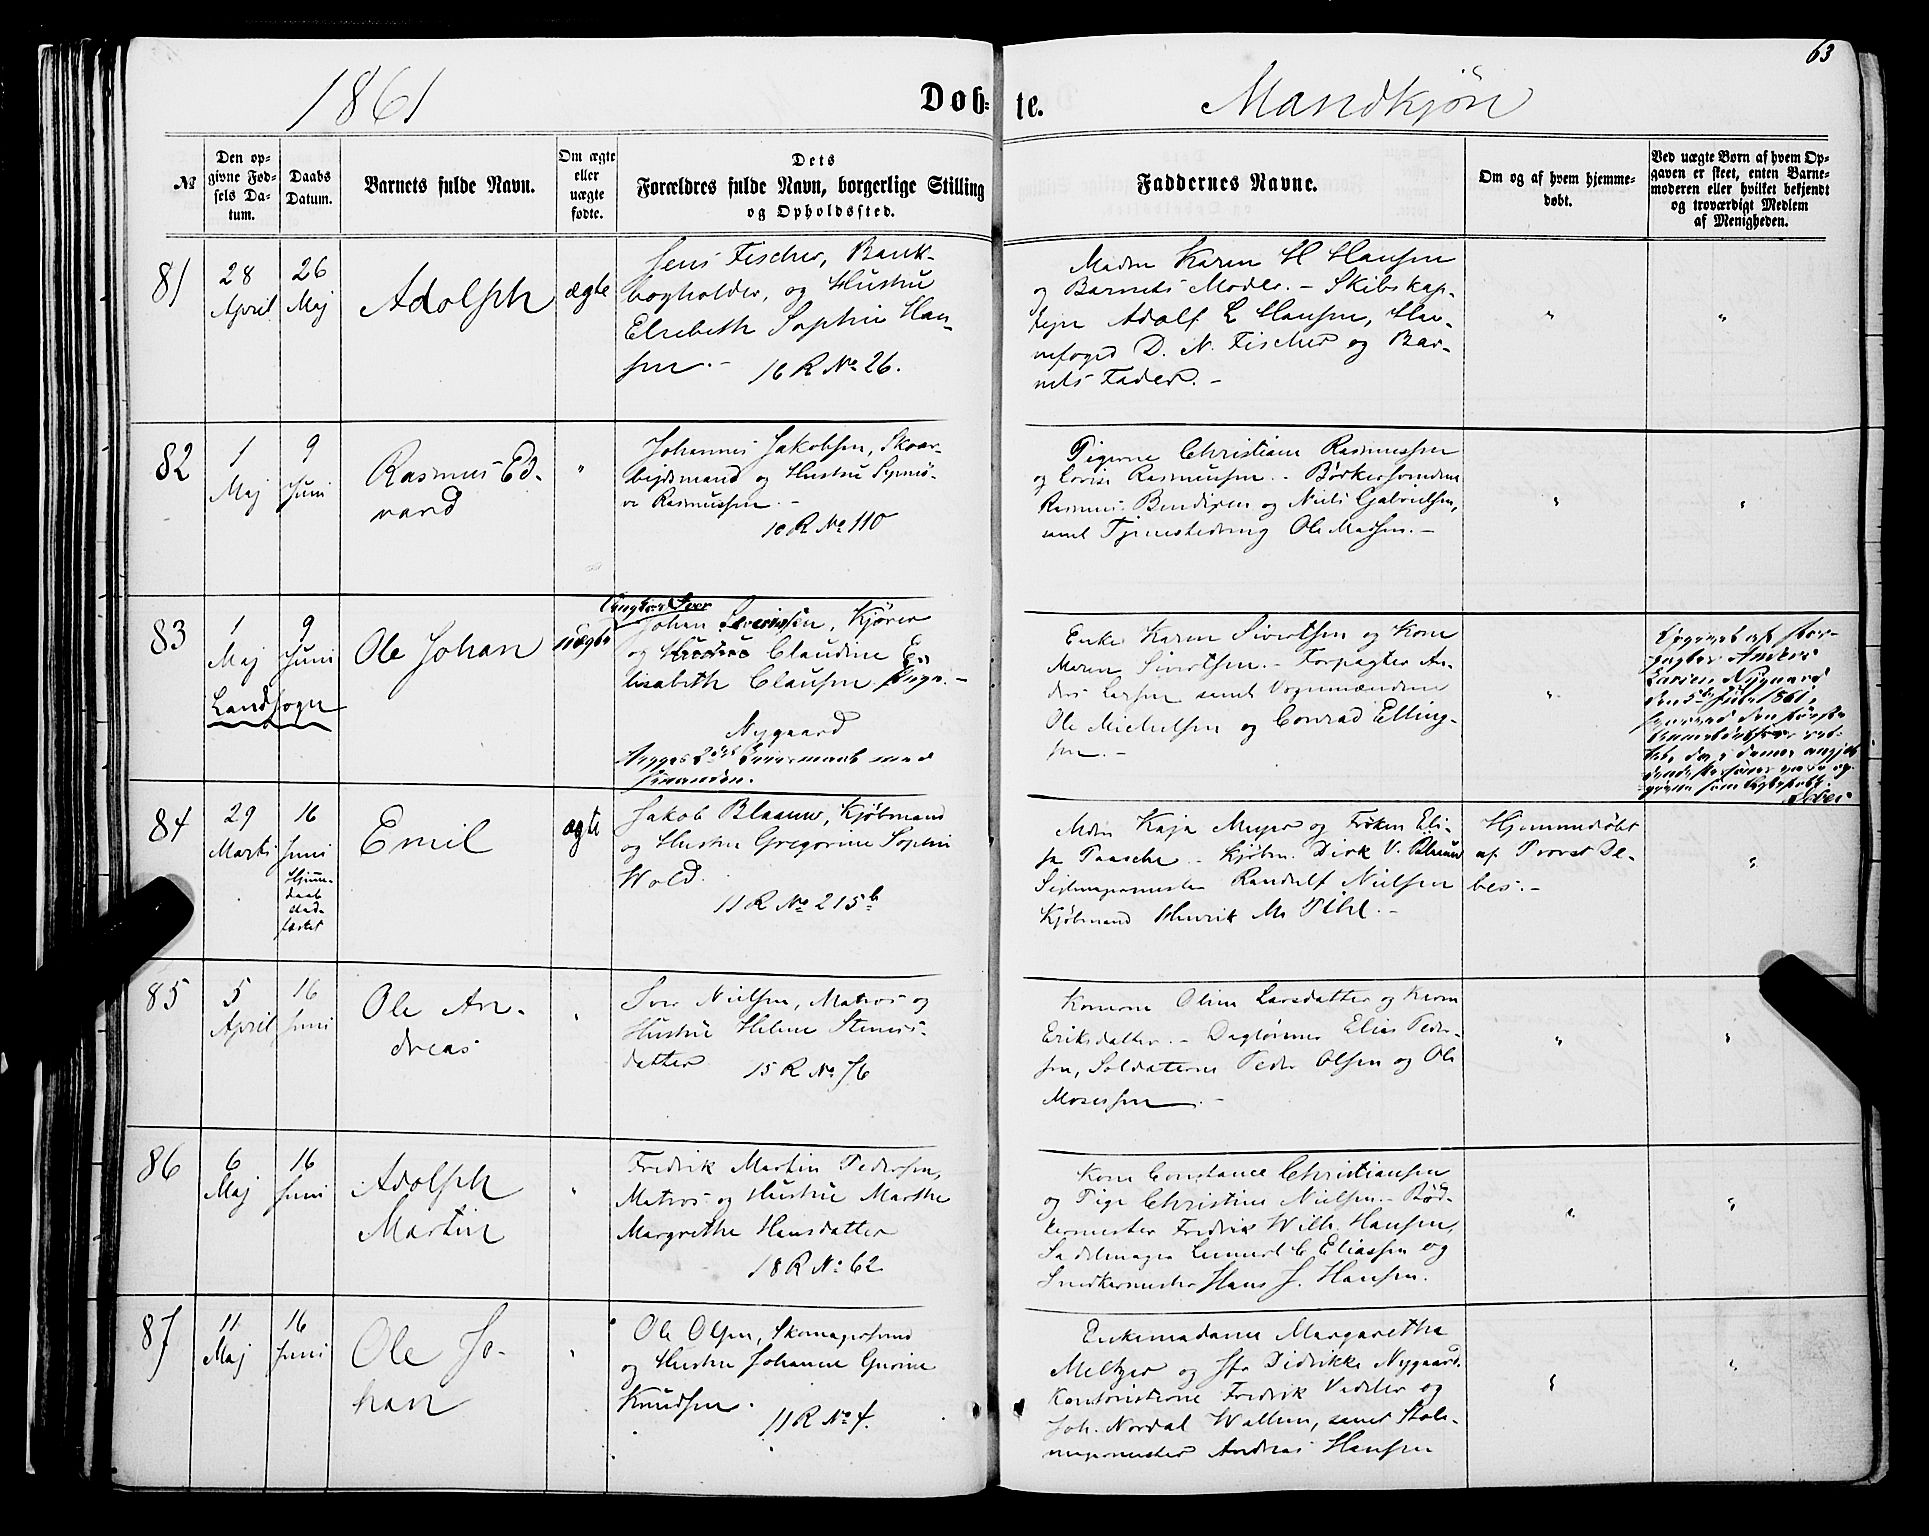 63
1861
Døb-
te.
Mandkjön
№
Den op-
givne Fød-
sels Da-
tum.
Daabs
Datum.
Barnets fulde Navn.
Om ægte
eller
uægte
fødte.
Dets
Forældres fulde Navn, borgerlige Stilling
og Opholdssted.
Faddernes Navne.
Om og af hvem hjemme-
døbt.
Ved uægte Børn af hvem Op-
gaven er skeet, enten Barne-
moderen eller hvilket bekjendt
og troværdigt Medlem
af Menigheden.
81
28
April
26
Maj
Adolph
ægte
Jens Fischer, Bank-
bogholder, og Hustru
Elsebeth Sophie Han-
sen.-
16 R No 26.
Madm Karen H Hansen
og Barnets Moder. - Skibskap-
tejn Adolf L Hansen, Hav-
nefoged D. N. Fischer og Bar-
nets Fader. -
"
"
82
1
Maj
9
Juni
Rasmus Ed-
vard
"
Johannes Jakobsen,
bejdsmand og Hustru Synnö-
ve Rasmussen. -
10 R No 110
Pigerne Christiane Rasmussen
og Lovise Rasmussen. - Bödkersvendene
Rasmus Bendixen og Niels Gabrielsen,
samt Tjenestedreng Ole Madsen. -
"
"
83
1
Maj
9
Juni
Landsogn
Ole Johan
uægte
Ungkarl Iver
Johan Severinsen, Kjörer
og Hustru Claudine E-
lisabeth Clausen. Pige. -
Nygaard
Begges 2det Leiermaal med
hinanden.
Enke Karen Sivertsen og Kone
Maren Sivertsen. - Forpagter An-
ders Larsen samt Vognmændene
Ole Michelsen og Conrad Elling-
sen. -
"
Opgivet af For-
pagter Anders
Larsen Nygaard
den 5te Juli 1861,
84
29
Marts
16
Juni
Hjem-
daab
stad-
fæstet
Emil
ægte
Jakob Blaauw, Kjöbmand
og Hustru Gregorine Sophie
Wold.
11 R No 215 b
Mdm Kaja Meyer og Fröken Eli-
se Paasche - Kjöbm. Dirk V. Blaauw
Sejlmagermester Randulf Nielsen
Kjöbmand Henrik M. Pihl. -
Hjemmedöbt
af Provst De-
bes. -
"
85
5
April
16
Juni
Ole An-
dreas
"
Iver Nielsen, Matros og
Hustru Helene Steners-
datter
15 R No 76
Konerne Oline Larsdatter og Karen
Eriksdatter. - Daglönner Elias Peder-
sen, Soldaterne Peder Olsen og Ole
Mosessen. -
"
"
86
6
Maj
16
Juni
Adolph
Martin
"
Fredrik Martin Pedersen,
Matros og Hustru Marthe
Margrethe Hansdatter
18 R No 62
Kone Constance Christiansen
og Pige Christine Nielsen. - Böd-
kermester Fredrik Wilh. Hansen,
Sadelmager Lennert C Eliassen og
Snedkermester Hans J. Hansen.
"
"
87
11
Maj
16
Juni
Ole Jo-
han
"
Ole Olsen, Skomagersvend
og Hustru Johanne Gurine
Knudsen.
11 R No 4.
Enkemadame Margaretha
Meltzer og Jfr Didrikke Nygaard.
Kontoristerne Fredrik Vedeler og
Joh. Nordal Wallem, samt Stole-
magermester Andreas Hansen
"
"